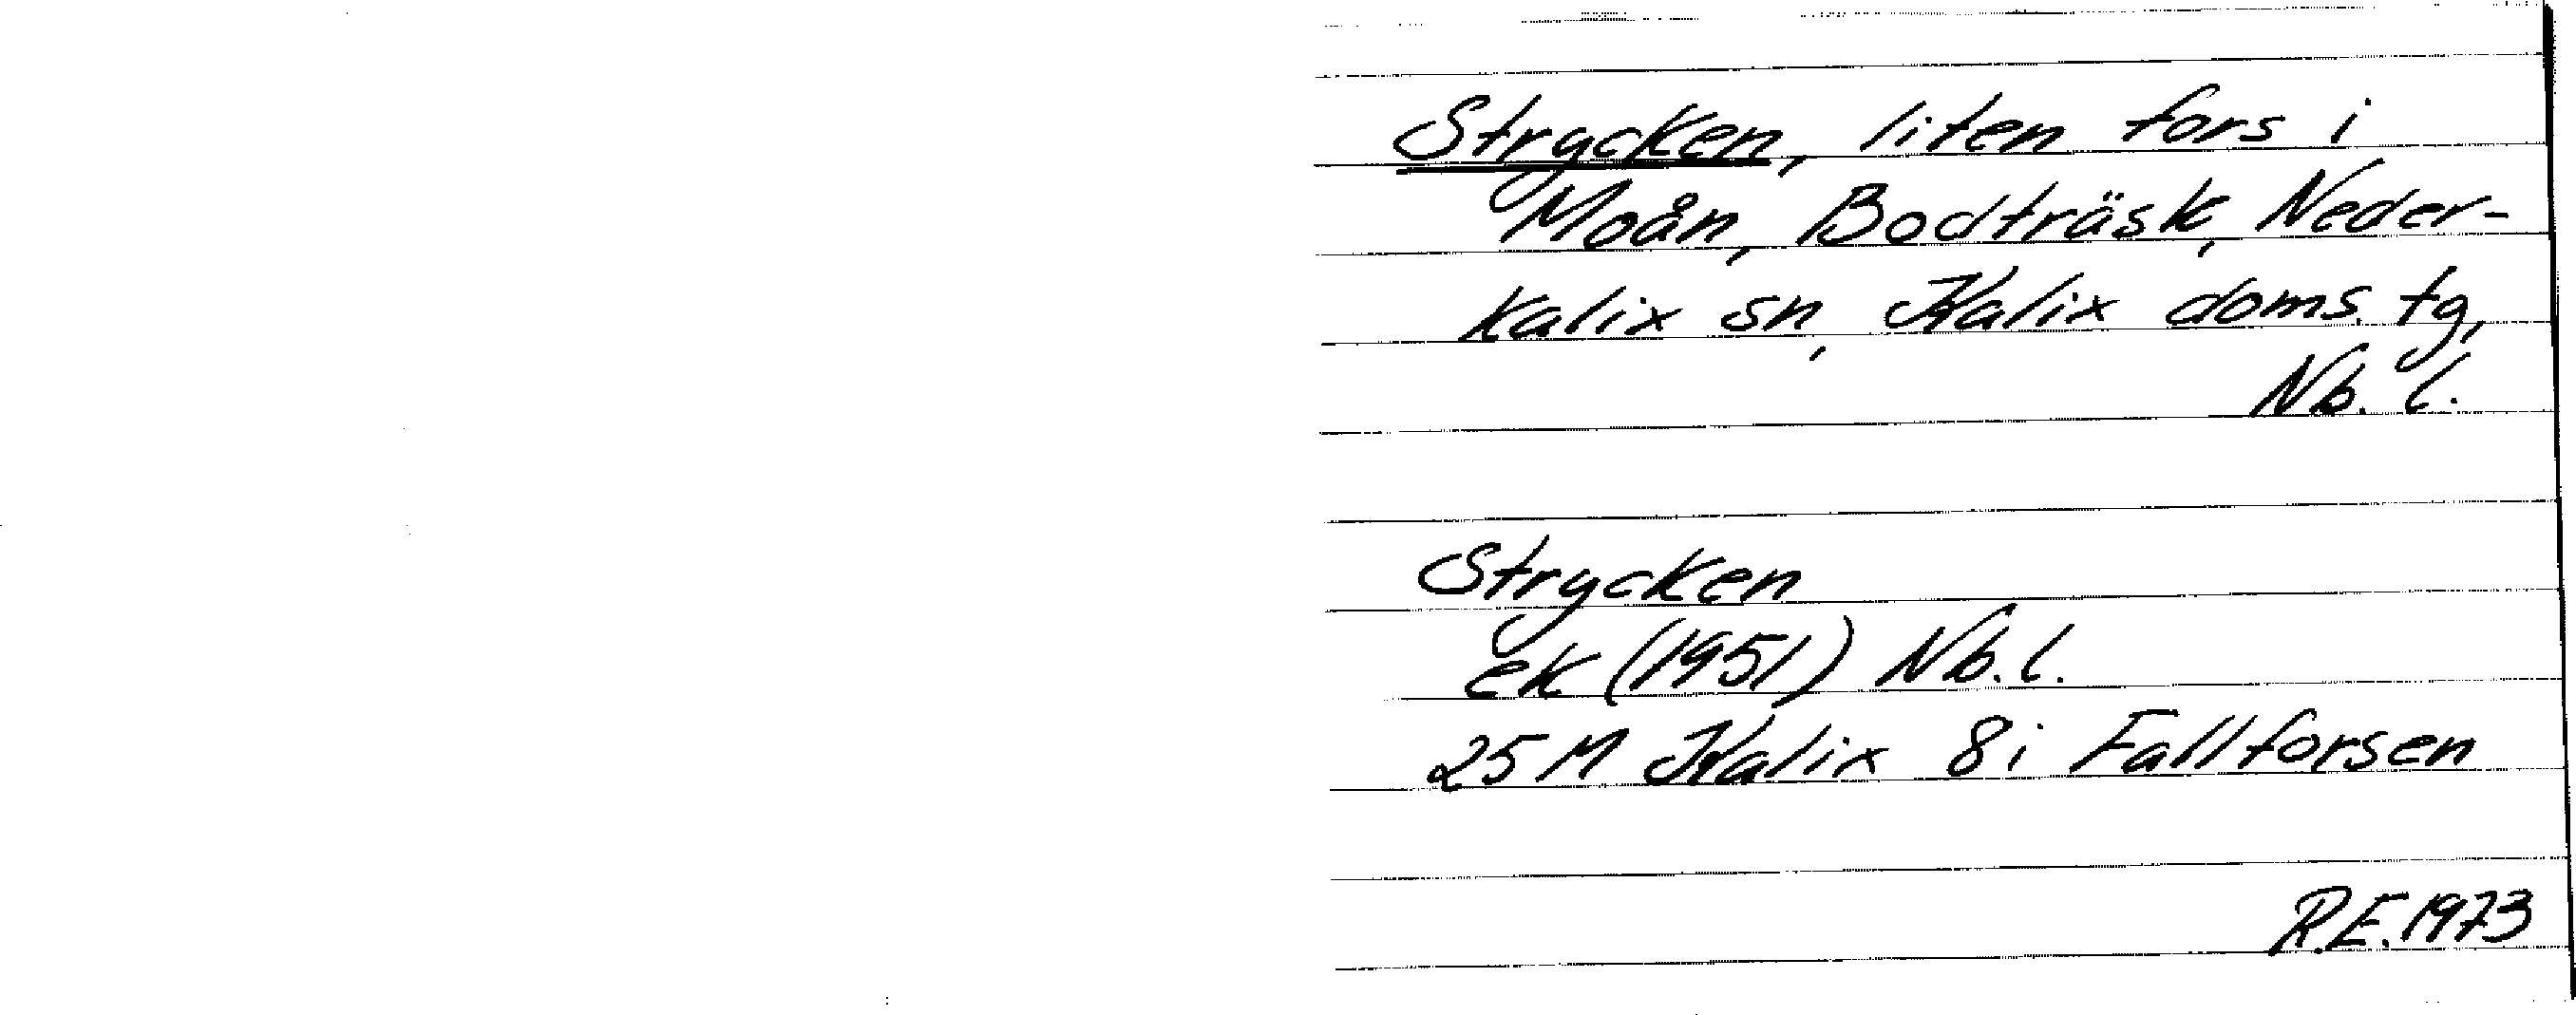 Strycken, liten fors i
Moån, Bodträsk, Neder-
kalix sn, Kalix doms. tg,
Nb. l.
Strycken
ek (1951) Nb. l.
25 M Kalix 8i Fallforsen
R.E. 1973